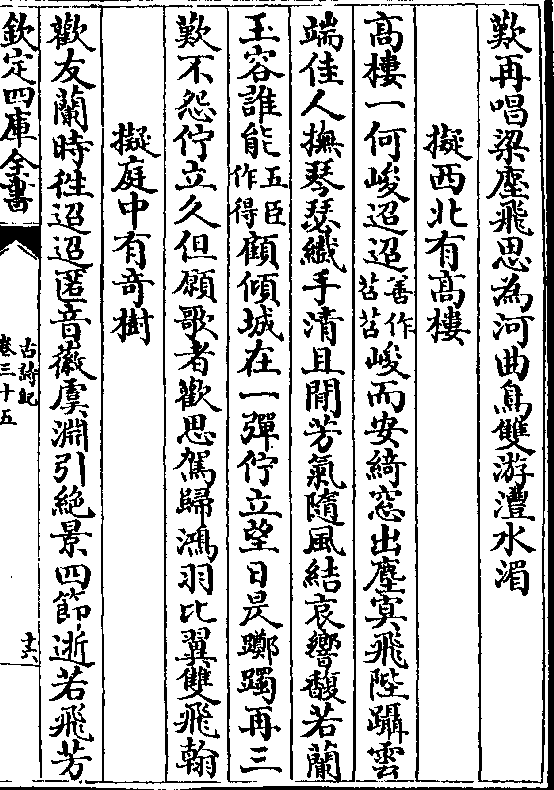 歎再唱梁塵飛思為河曲鳥雙游澧水湄
擬西北有髙樓
髙樓一何峻迢迢善作苕苕峻而安綺窓出塵㝠飛陛躡雲
端佳人撫琴瑟纖手清且閒芳氣隨風結哀響馥若蘭
玉容誰能五臣作得顧傾城在一彈佇立望日昃躑躅再三
歎不怨佇立久但願歌者歡思駕歸鴻羽比翼雙飛翰
擬庭中有奇樹
歡友蘭時徃迢迢匿音徽虞淵引絶景四節逝若飛芳
欽定四庫全書
古詩紀
卷三十五
十六